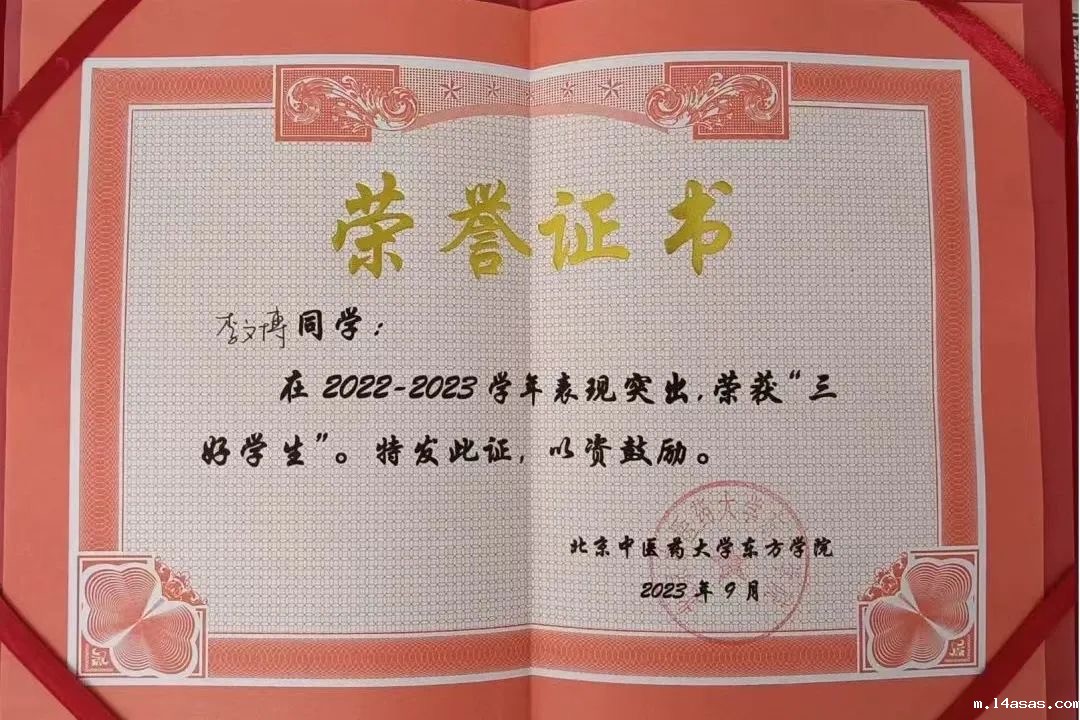 荣誉证书
李文博同学：
在2022-2023学年表现突出，荣获“三
好学生”。特发此证，以资鼓励。
北京中医药大学东方学院
2023年9月
m.14asas.com